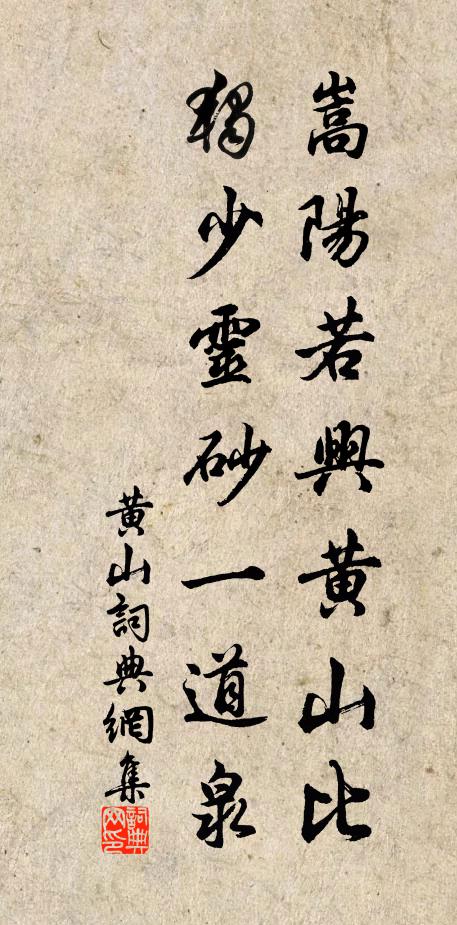 嵩陽若與黄山比
獨少靈砂一道泉
黄山詞典網集
詞典網印